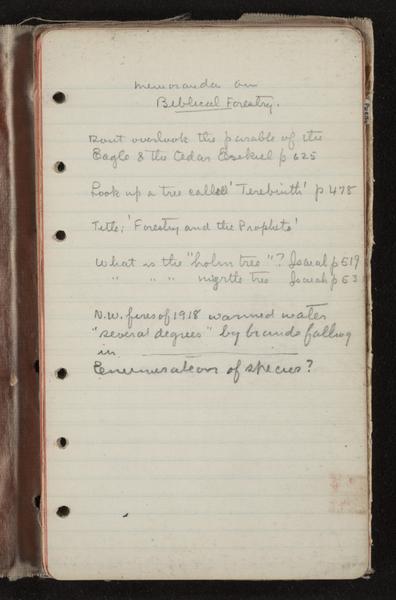 Memoranda on
Biblical Forestry.
Dont overlook the parable of the
Eagle & the Cedar Ezekiel p 625
Look up a tree called 'Terebinth' p 478
Title; 'Forestry and the Prophets'
What is the "holm tree"? Isaiah p 519
" " " " myrtle tree Isaiah p 53
N.W. fires of 1918 warmed water
"several degrees" by brands falling
in
Enumeration of species?